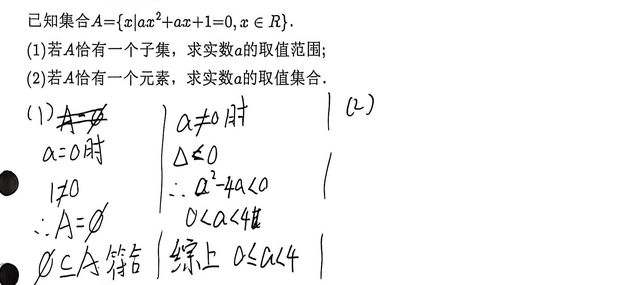 已知集合A={x|ax²+ax+1=0,x∈R}.
(1)若A恰有一个子集，求实数a的取值范围;
(2)若A恰有一个元素，求实数a的取值集合.
(1) A=∅
a=0时
1≠0
∴A=∅
∅⊆A 符合
a≠0时
Δ<0
∴a²-4a<0
0<a<4
综上 0≤a<4
(2)